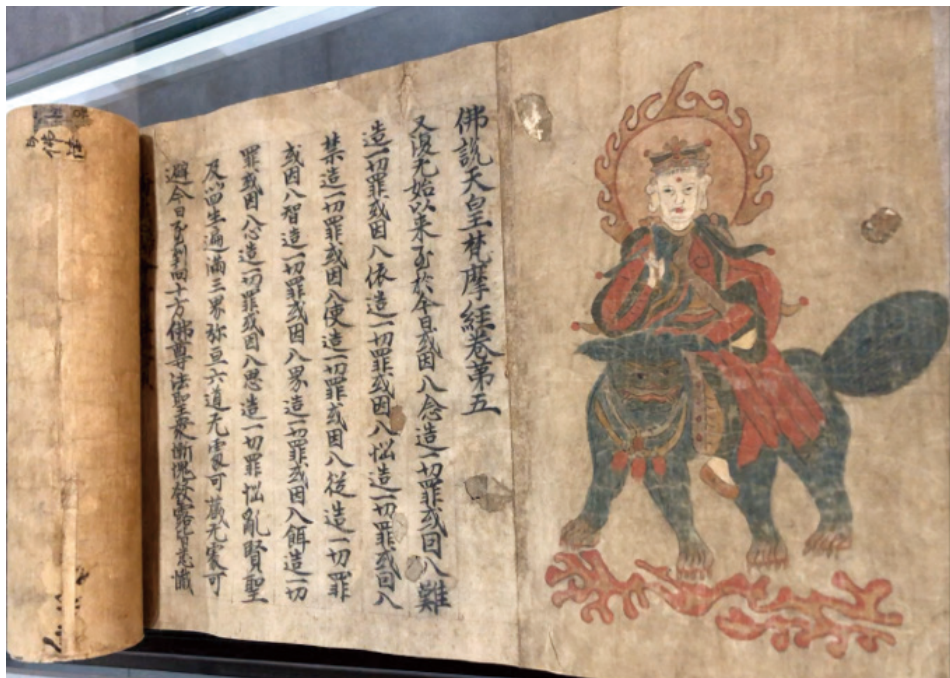 佛説天皇梵摩經卷第五
又復无始以來至於今日或因八念造一切罪或因八難
造一切罪或因八依造一切罪或因八惱造一切罪或因八
禁造一切罪或因八使造一切罪或因八從造一切罪
或因八智造一切罪或因八界造一切罪或因八餌造一切
罪或因八念造一切罪或因八思造一切罪惱亂賢聖
及以四生遍滿三界弥亘六道无處可藏无處可
避今日至到向十方佛尊法聖衆慚愧發露皆悉懺